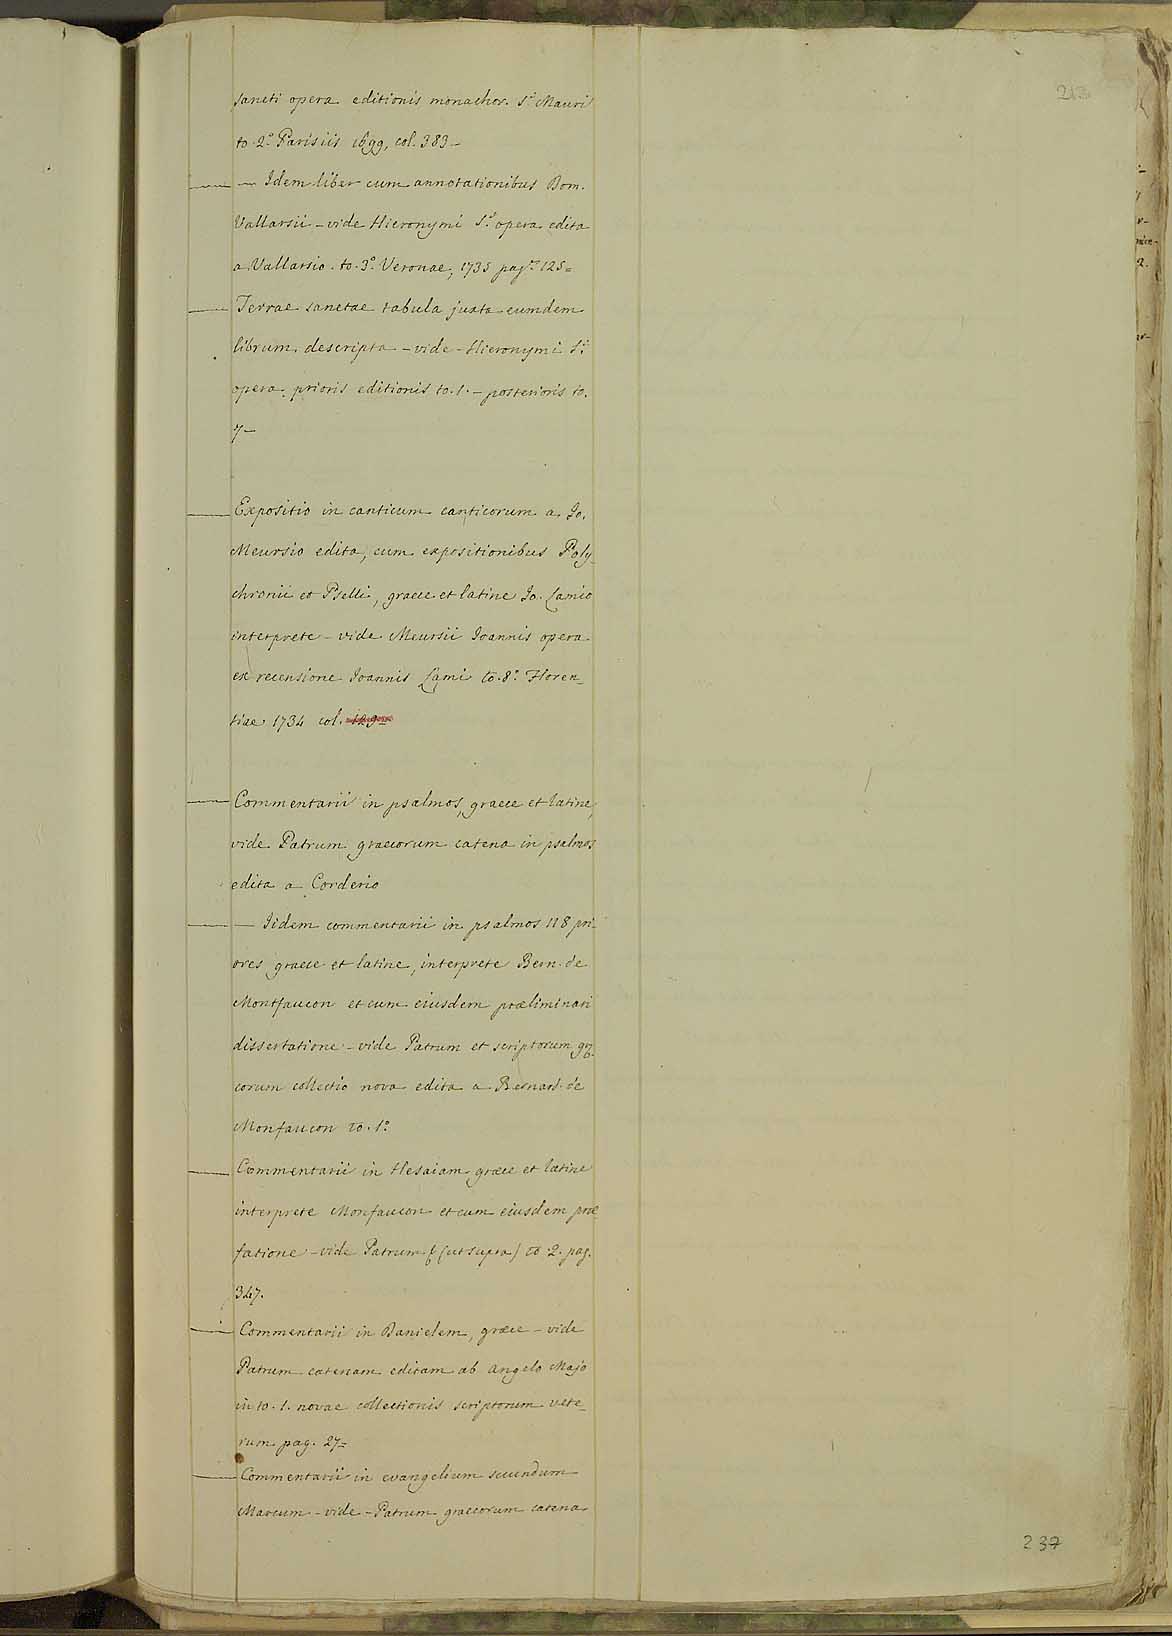 213
sancti opera editionis monachor. S.ti Mauri
to. 2.° Parisiis 1699, col. 383 -
— Idem liber cum annotationibus Dom.
Vallarsii - vide Hieronymi S.ti opera edita
a Vallarsio. to. 3.° Veronae, 1735 pag.na 125 =
Terrae sanctae tabula juxta eumdem
librum descripta - vide - Hieronymi S.ti
opera. prioris editionis to. 1. - posterioris to.
7 -
Expositio in canticum canticorum a Jo.
Meursio edita, cum expositionibus Poly-
chronii et Pselli, graece et latine Jo. Lamio
interprete - vide Meursii Joannis opera
ex recensione Joannis Lami to. 8.° Floren-
tiae 1734 col. 129 =
Commentarii in psalmos, graece et latine,
vide Patrum graecorum catena in psalmos
edita a Corderio
— Iidem commentarii in psalmos 118 pri-
ores graece et latine, interprete Bern. de
Montfaucon et cum eiusdem praeliminari
dissertatione - vide Patrum et scriptorum grę-
corum collectio nova edita a Bernard. de
Monfaucon to. 1.°
Commentarii in Hesaiam graece et latine
interprete Monfaucon et cum eiusdem prae-
fatione - vide Patrum & (ut supra) to. 2. pag.
347.
Commentarii in Danielem, graece - vide
Patrum catenam editam ab Angelo Majo
in to. 1. novae collectionis scriptorum vete-
rum pag. 27 =
Commentarii in evangelium secundum
Marcum - vide - Patrum graecorum catena
237